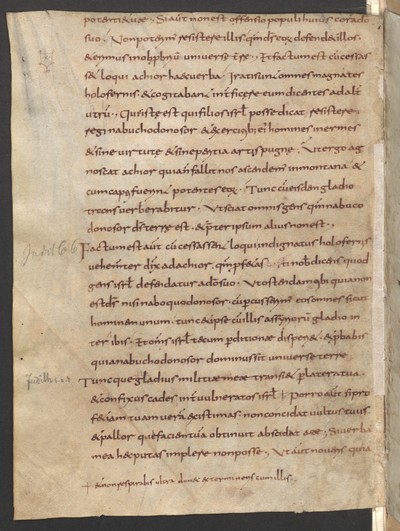 potentiae tuae. Si aut non est offensio populi huius coram do
suo. Non poterim resistere illis. qm ds eor defendet illos.
& erimus in obprbriū universe tre. Et factum est cū cessas
set loqui achior haec verba. Irati sunt omnes magnates
holofernis & cogitabant int ficere eum dicentes ad alte
utrū. Quis iste est qui filios isrl posse dicat resistere
regi nabuchodonosor & exercitib; ei homines inermes
& sine virtute & sine peritia artis pugne. Ut ergo ag
noscat achior quia fallit nos ascendem in montana. &
cum capti fuerint potentes eor. Tunc cū eisdem gladio
transverberabitur. Ut sciat omnis gens qm nabuco
donosor ds terre est. & pter ipsum alius non est.
Judith C. 6
Factum est aut cū cessassent loqui indignatus holofernis
vehementer dix ad achior. qm pfetas. Et nob dicens quod
gens isrl defendatur a do suo. Ut ostendam tibi quia non
est ds nisi naboquodonosor. cū percusserim eos omnes sicut
hominem unum. tunc & ipse cū illis assyriorū gladio in
ter ibis. Et omis isrl tecum pditione disperdet. & pbabis
quia nabuchodonosor dominus sit universe terre.
Tuncque gladius militiae meae transiet p latera tua.
& confixus cades int vulneratos isrl + Porro aut si pro
fetiam tuam verā existimas. non concidat vultus tuus
& pallor qui faciem tuā obtinuit abscedat a te. Si verba
mea haec putas implere non posse. Ut aut noveris quia
+ & non respirabis ultra donec exterminens cum illis.